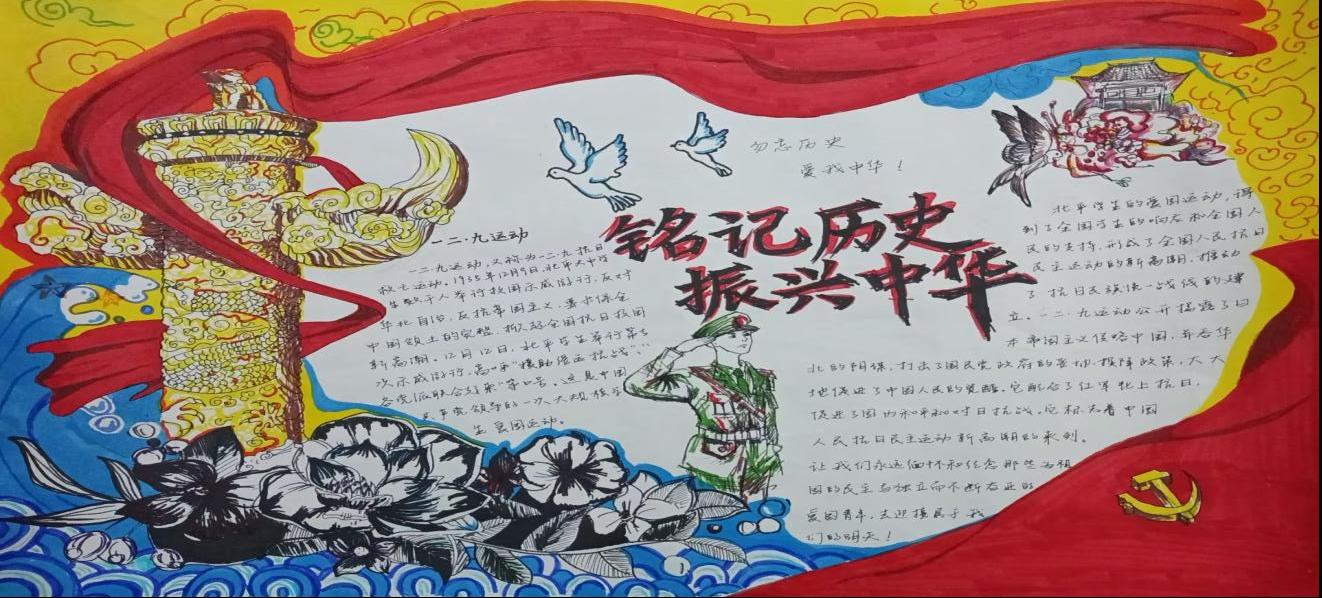 勿忘历史
爱我中华！
铭记历史
振兴中华
一二·九运动
一二·九运动，又称为一二·九抗日
救亡运动。1935年12月9日，北平大中学
生数千人举行抗日示威游行，反对
华北自治，反抗帝国主义，要求保全
中国领土的完整，掀起全国抗日救国
新高潮。12月12日，北平学生举行第5
次示威游行，高呼"援助绥远抗战"，"
各党派联合起来"等口号。这是中国
共产党领导的一次大规模学
生爱国运动。
北平学生的爱国运动，得
到了全国学生的响应和全国人
民的支持，形成了全国人民抗日
民主运动的新高潮，推动
了抗日民族统一战线的建
立。一二·九运动公开揭露了日
本帝国主义侵略中国，并吞华
北的阴谋，打击了国民党政府的妥协投降政策，大大
地促进了中国人民的觉醒。它配合了红军北上抗日，
促进了国内和平和对日抗战。它标志着中国
人民抗日民主运动新高潮的来到。
让我们永远缅怀和纪念那些为祖
国的民主与独立而不断奋进的
爱国青年，去迎接属于我
们的明天！